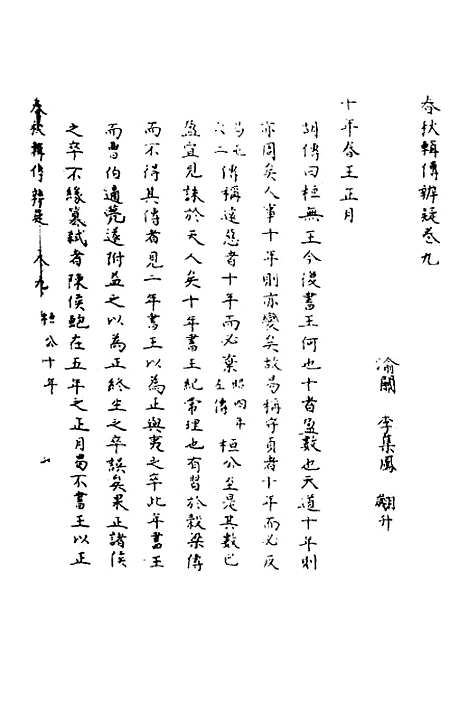 春秋輯傳辨疑卷九
渝關 李集鳳 翽升
十年春王正月
胡傳曰桓無王今復書王何也十者盈數也天道十年則
亦周矣人事十年則亦變矣故易稱守貞者十年而必反
易屯六二傳稱遠惡者十年而必棄昭四年左傳桓公至是其數已
盈宜見誅於天人矣十年書王紀常理也有習於穀梁傳
而不得其傳者見二年書王以為正與夷之卒此年書王
而曹伯適薨遂附益之以為正終生之卒誤矣果正諸侯
之卒不緣篡弒者陳侯鮑在五年之正月曷不書王以正
春秋輯傳辨疑 卷九 桓公十年